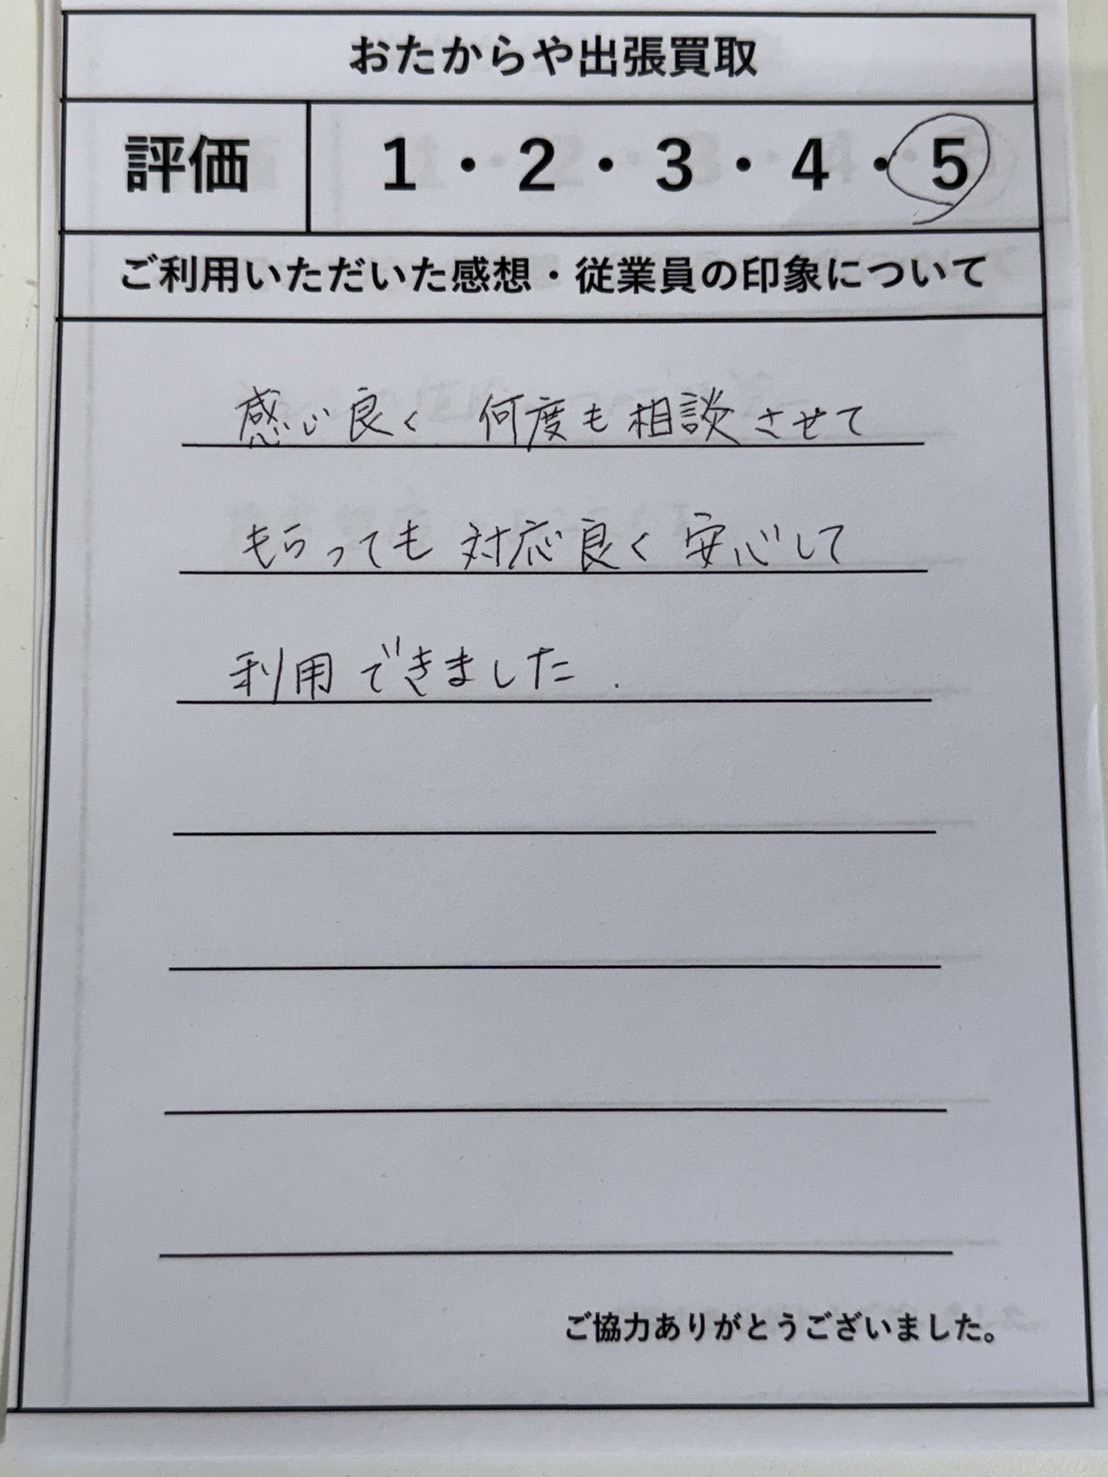 おたからや出張買取
評価 1・2・3・4・5
ご利用いただいた感想・従業員の印象について
感じ良く 何度も相談させて
もらっても 対応良く 安心して
利用できました.
ご協力ありがとうございました。